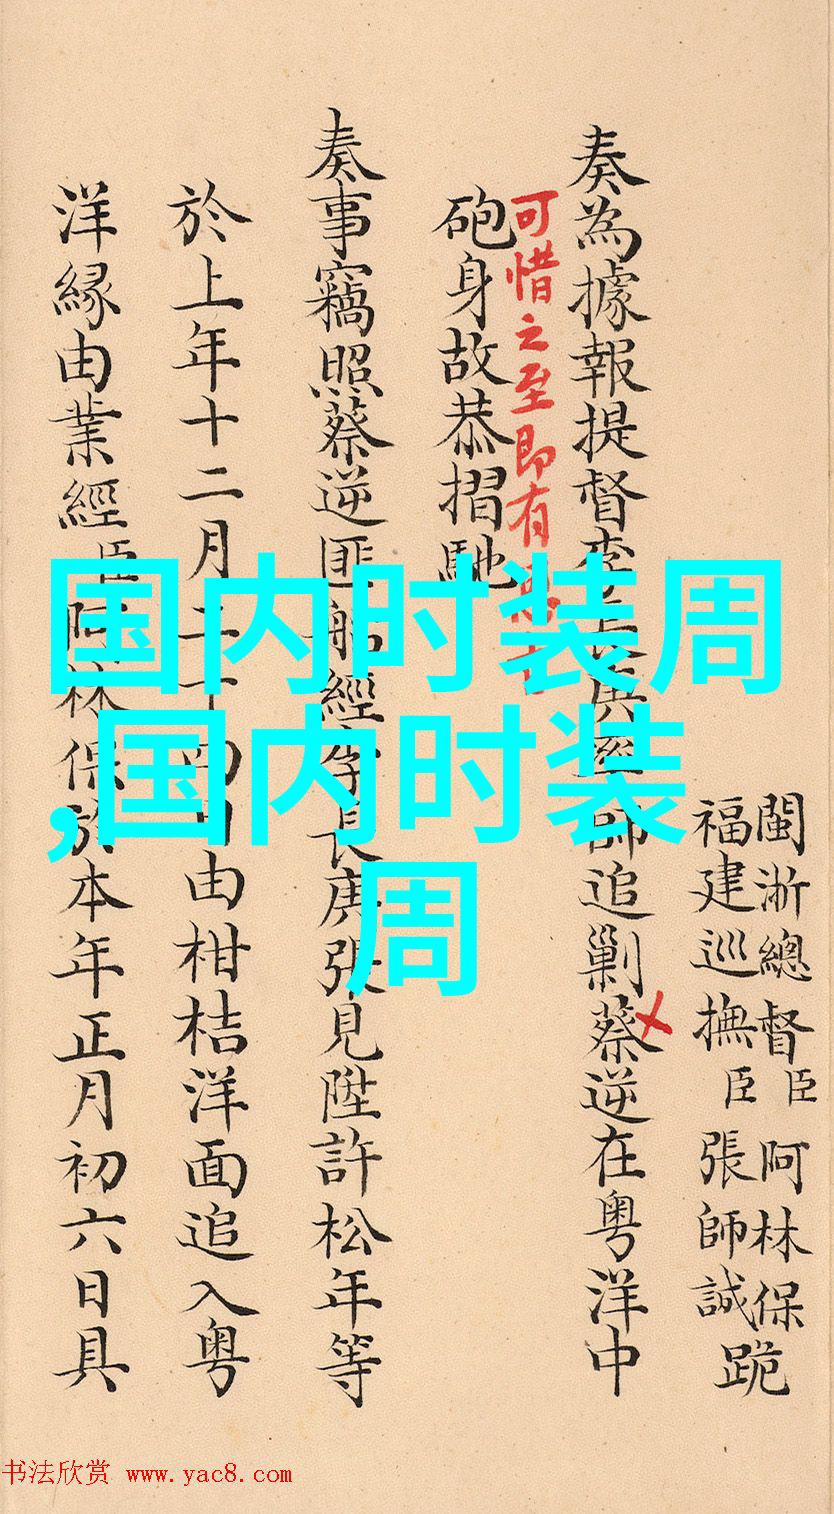 閩浙總督臣阿林保
福建巡撫臣張師誠跪
奏為據報提督李長庚 師追剿蔡逆在粵洋中
可惜之至即有
砲身故恭摺馳
奏事竊照蔡逆匪船經李長庚張見陞許松年等
於上年十二月二十 日由柑桔洋面追入粵
洋緣由業經臣阿林保於本年正月初六日具
国内时装周
,国内时装
周
书法欣赏 www.yac8.com